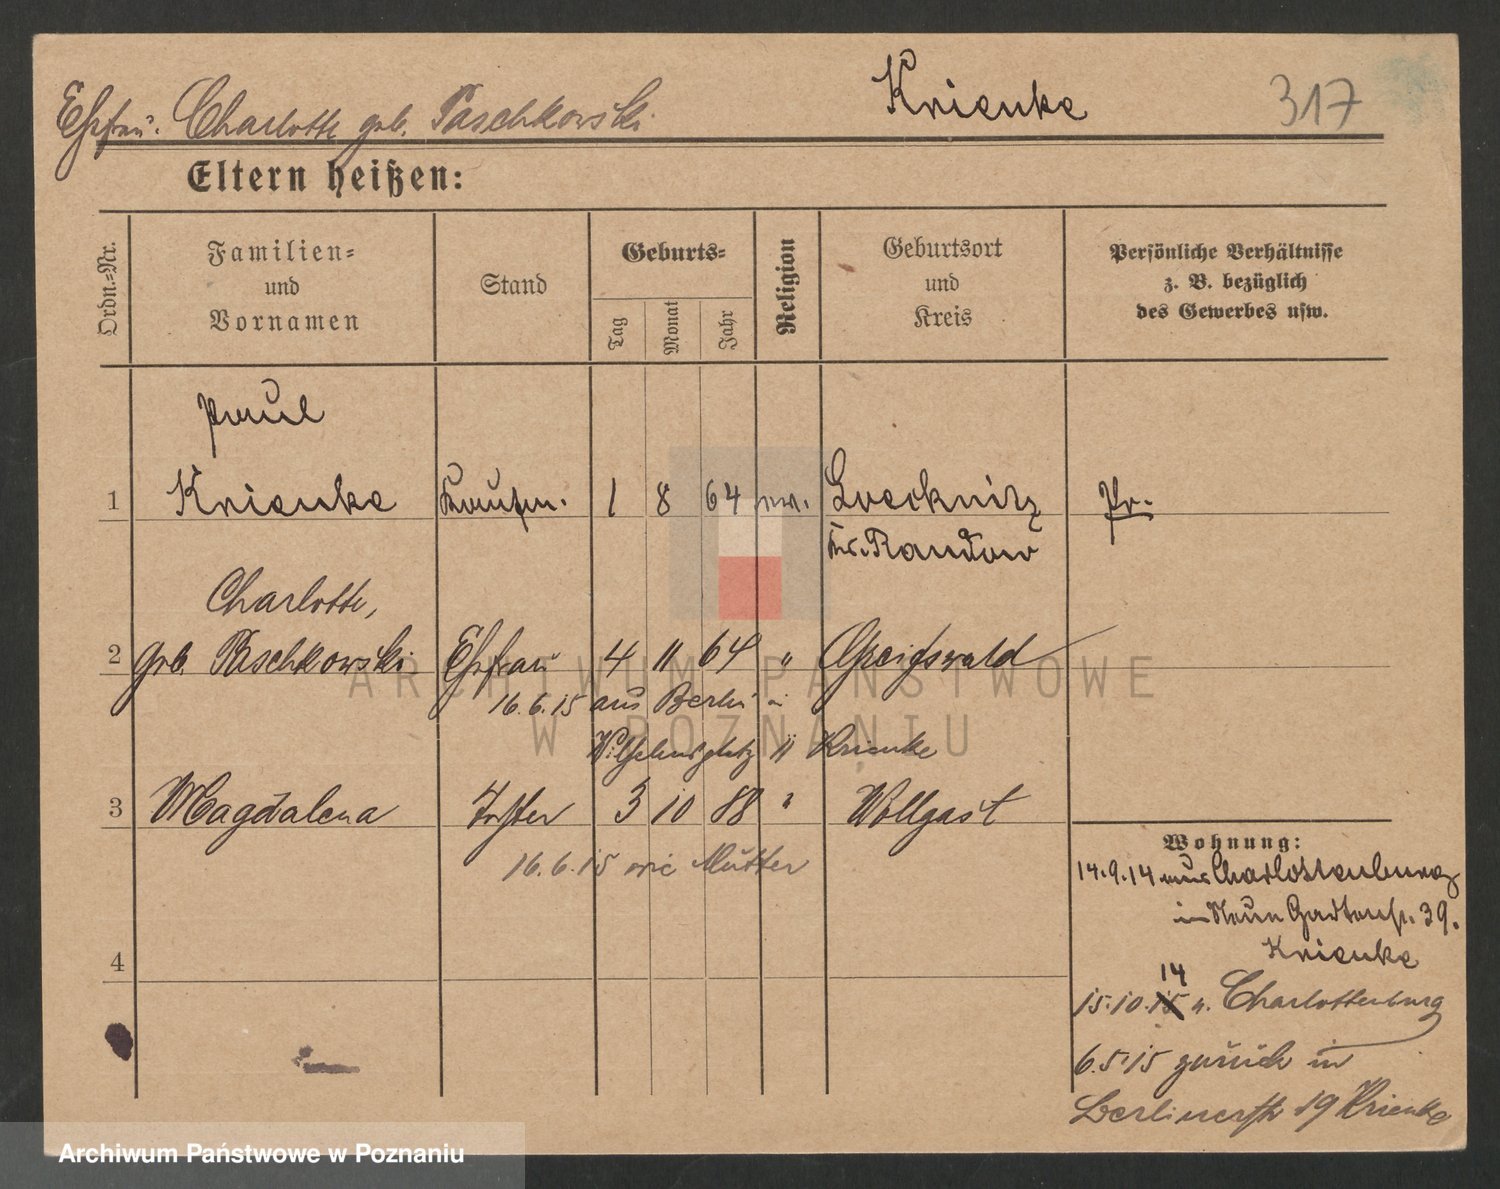 Ehefrau. Charlotte geb. Paschkowski
Krienke
317
Eltern heißen:
Ordn.=Nr.
Familien=
und
Vornamen
Stand
Geburts=
Tag
Monat
Jahr
Religion
Geburtsort
und
Kreis
Persönliche Verhältnisse
z. B. bezüglich
des Gewerbes usw.
Paul
1 Krienke Kaufm. 1 8 64 Loecknitz Pr.
Kr. Randow
Charlotte,
2 geb. Paschkowski Ehefrau 4 11 64 " Greifswald
16.6.15 aus Berlin in
Wilhelmsplatz 11 Krienke
3 Magdalena Tochter 3 10 88 " Wollgast
16.6.15 wie Mutter
4
Wohnung:
14.9.14 aus Charlottenburg
in Neue Gartenstr. 39.
Krienke
14
15.10.15 n. Charlottenburg
6.5.15 zurück in
Berlinerstr 19 Krienke
ARCHIWUM PAŃSTWOWE
W POZNANIU
Archiwum Państwowe w Poznaniu